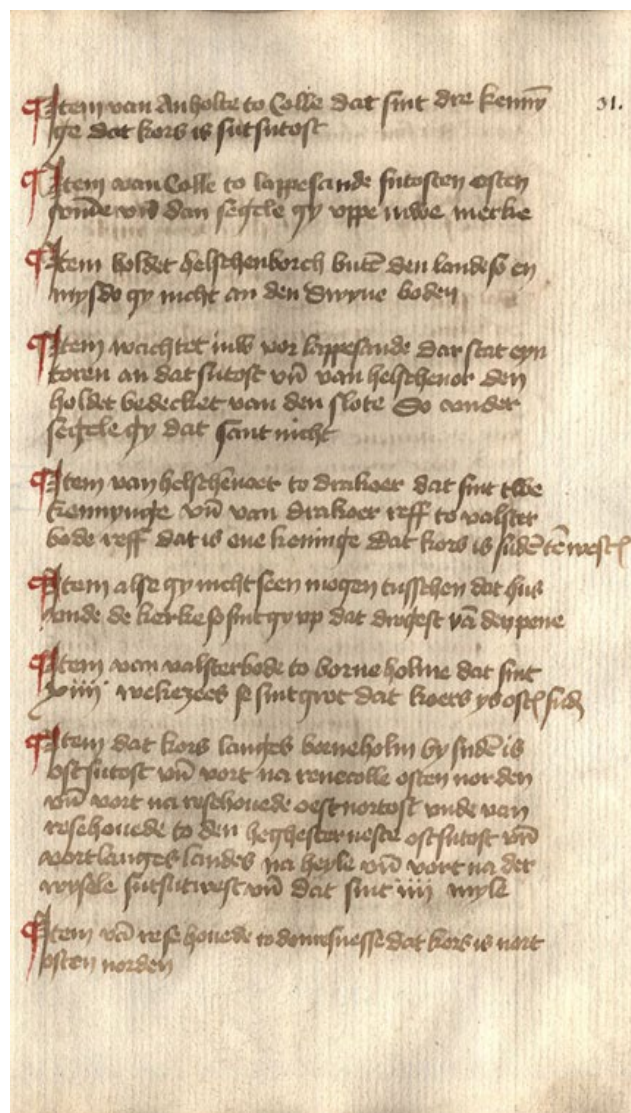 Item van Anholte to Colle dat sint dre kenny̅
ge dat kors is sutsutost
31.
Item van Colle to lappesande sutosten osten
vn̅ dan segele gy vppe juwe merke
Item holdet helschenborch bute̅ den landes so en
mysdo gy nicht an den Swyne boden
Item wachtet juw vor lappesande dar stat eyn
toren an dat sutost vn̅ van helschenor den
holdet bedecket van den slote So
segele gy dat sant nicht
Item van helschenoer to drakoer dat sint twe
kennynge vn̅ van drakoer reff to valster
bode reff dat is ene keninge dat kors is sude̅ te̅ west
Item alse gy nicht seen mogen tusschen dat hus
vnde de kerke so sint gy vp dat drogest va̅ deypene
Item van valsterbode to borneholme dat sint
xiiij wekezees se sint grot dat koers ys ost sud
Item dat kors langes borneholm by sude̅ is
ostsutost vn̅ vort na reuecolle osten norden
vn̅ vort na resehouede oestnortost vnde van
resehouede to den heghester neste ostsutost vn̅
vort langes landes na heyle vn̅ vort na der
wysele sutsutwest vn̅ dat sint iiij myle
Item va̅ rese houede to domesnesse dat kors is nort
osten norden